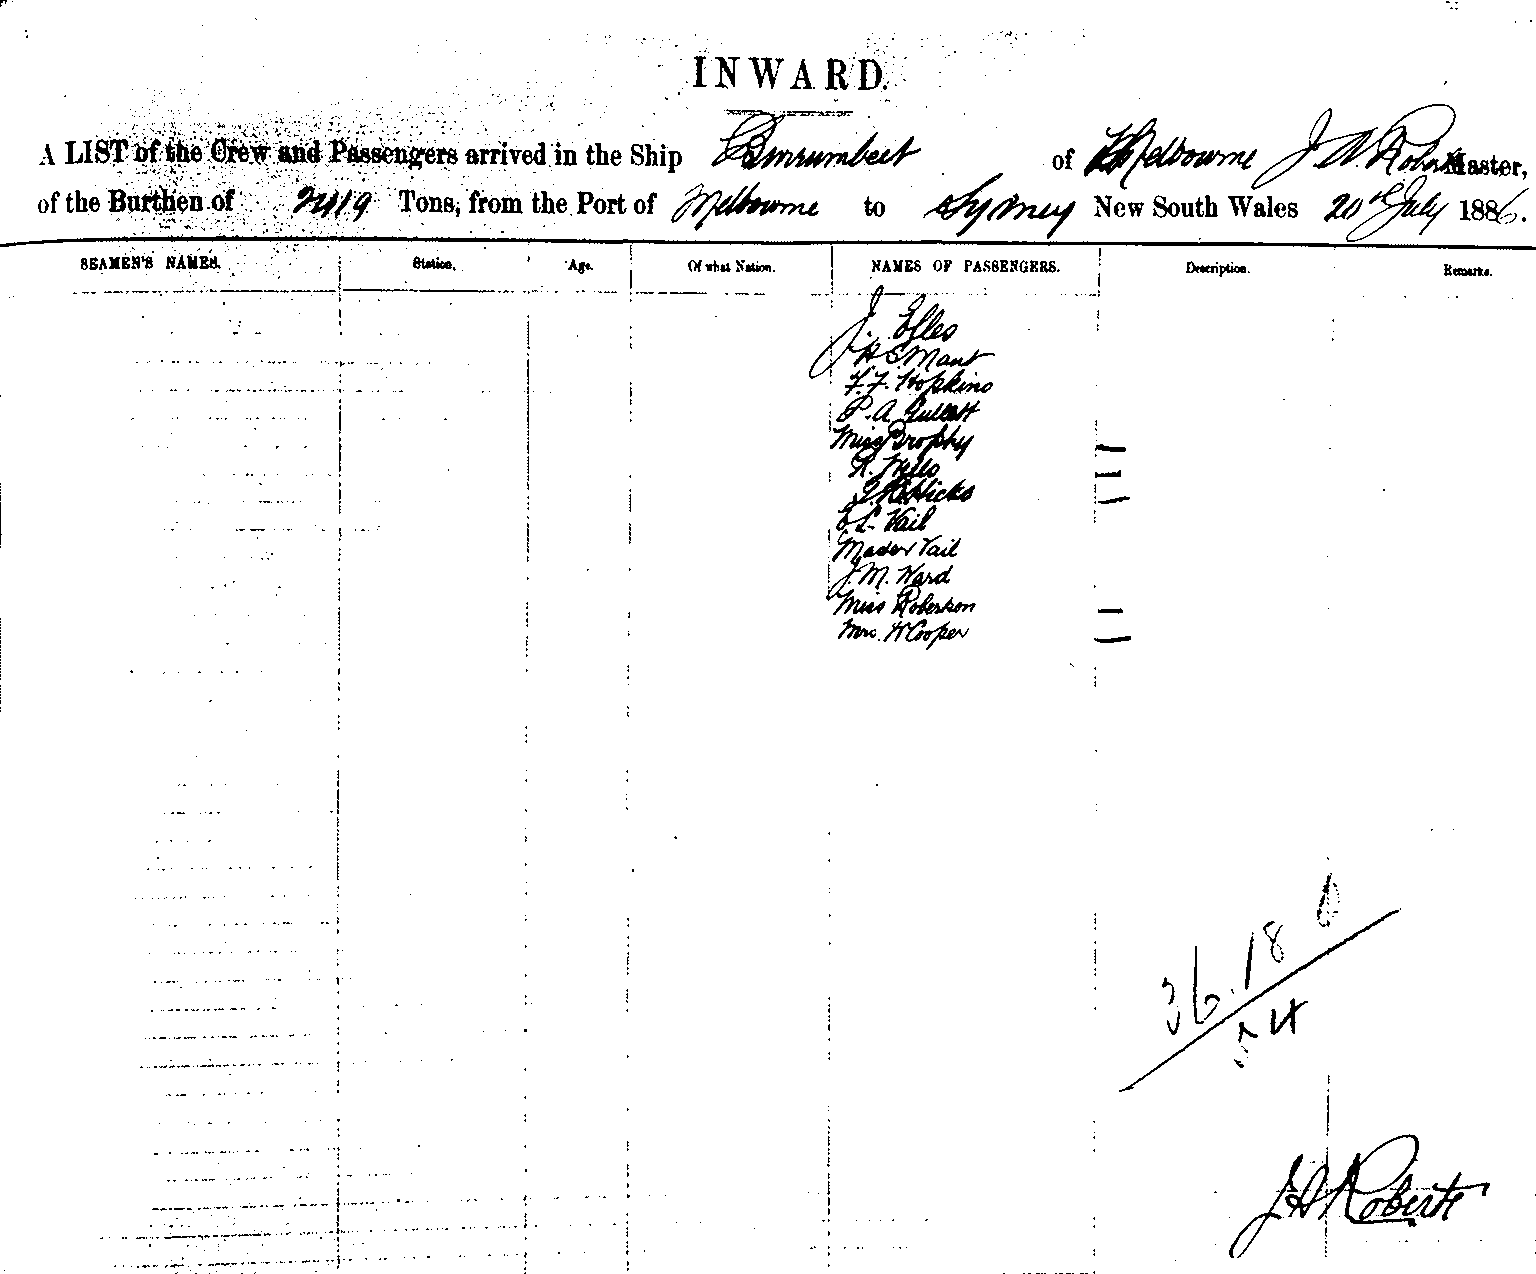 INWARD.
A LIST of the Crew and Passengers arrived in the Ship Burrumbeet of Melbourne J A Roberts Master,
of the Burthen of 2419 Tons, from the Port of Melbourne to Sydney New South Wales 20th July 1886.
SEAMEN'S NAMES. Station. Age. Of what Nation. NAMES OF PASSENGERS. Description. Remarks.
J.
H S Mant
F. F. Hopkins
P. A. Gullett
Miss Brophy
R. Wills
Hicks
E L Vail
Master Vail
J. M. Ward
Miss Robertson
Mrs. H Cooper
36.18
J A Roberts